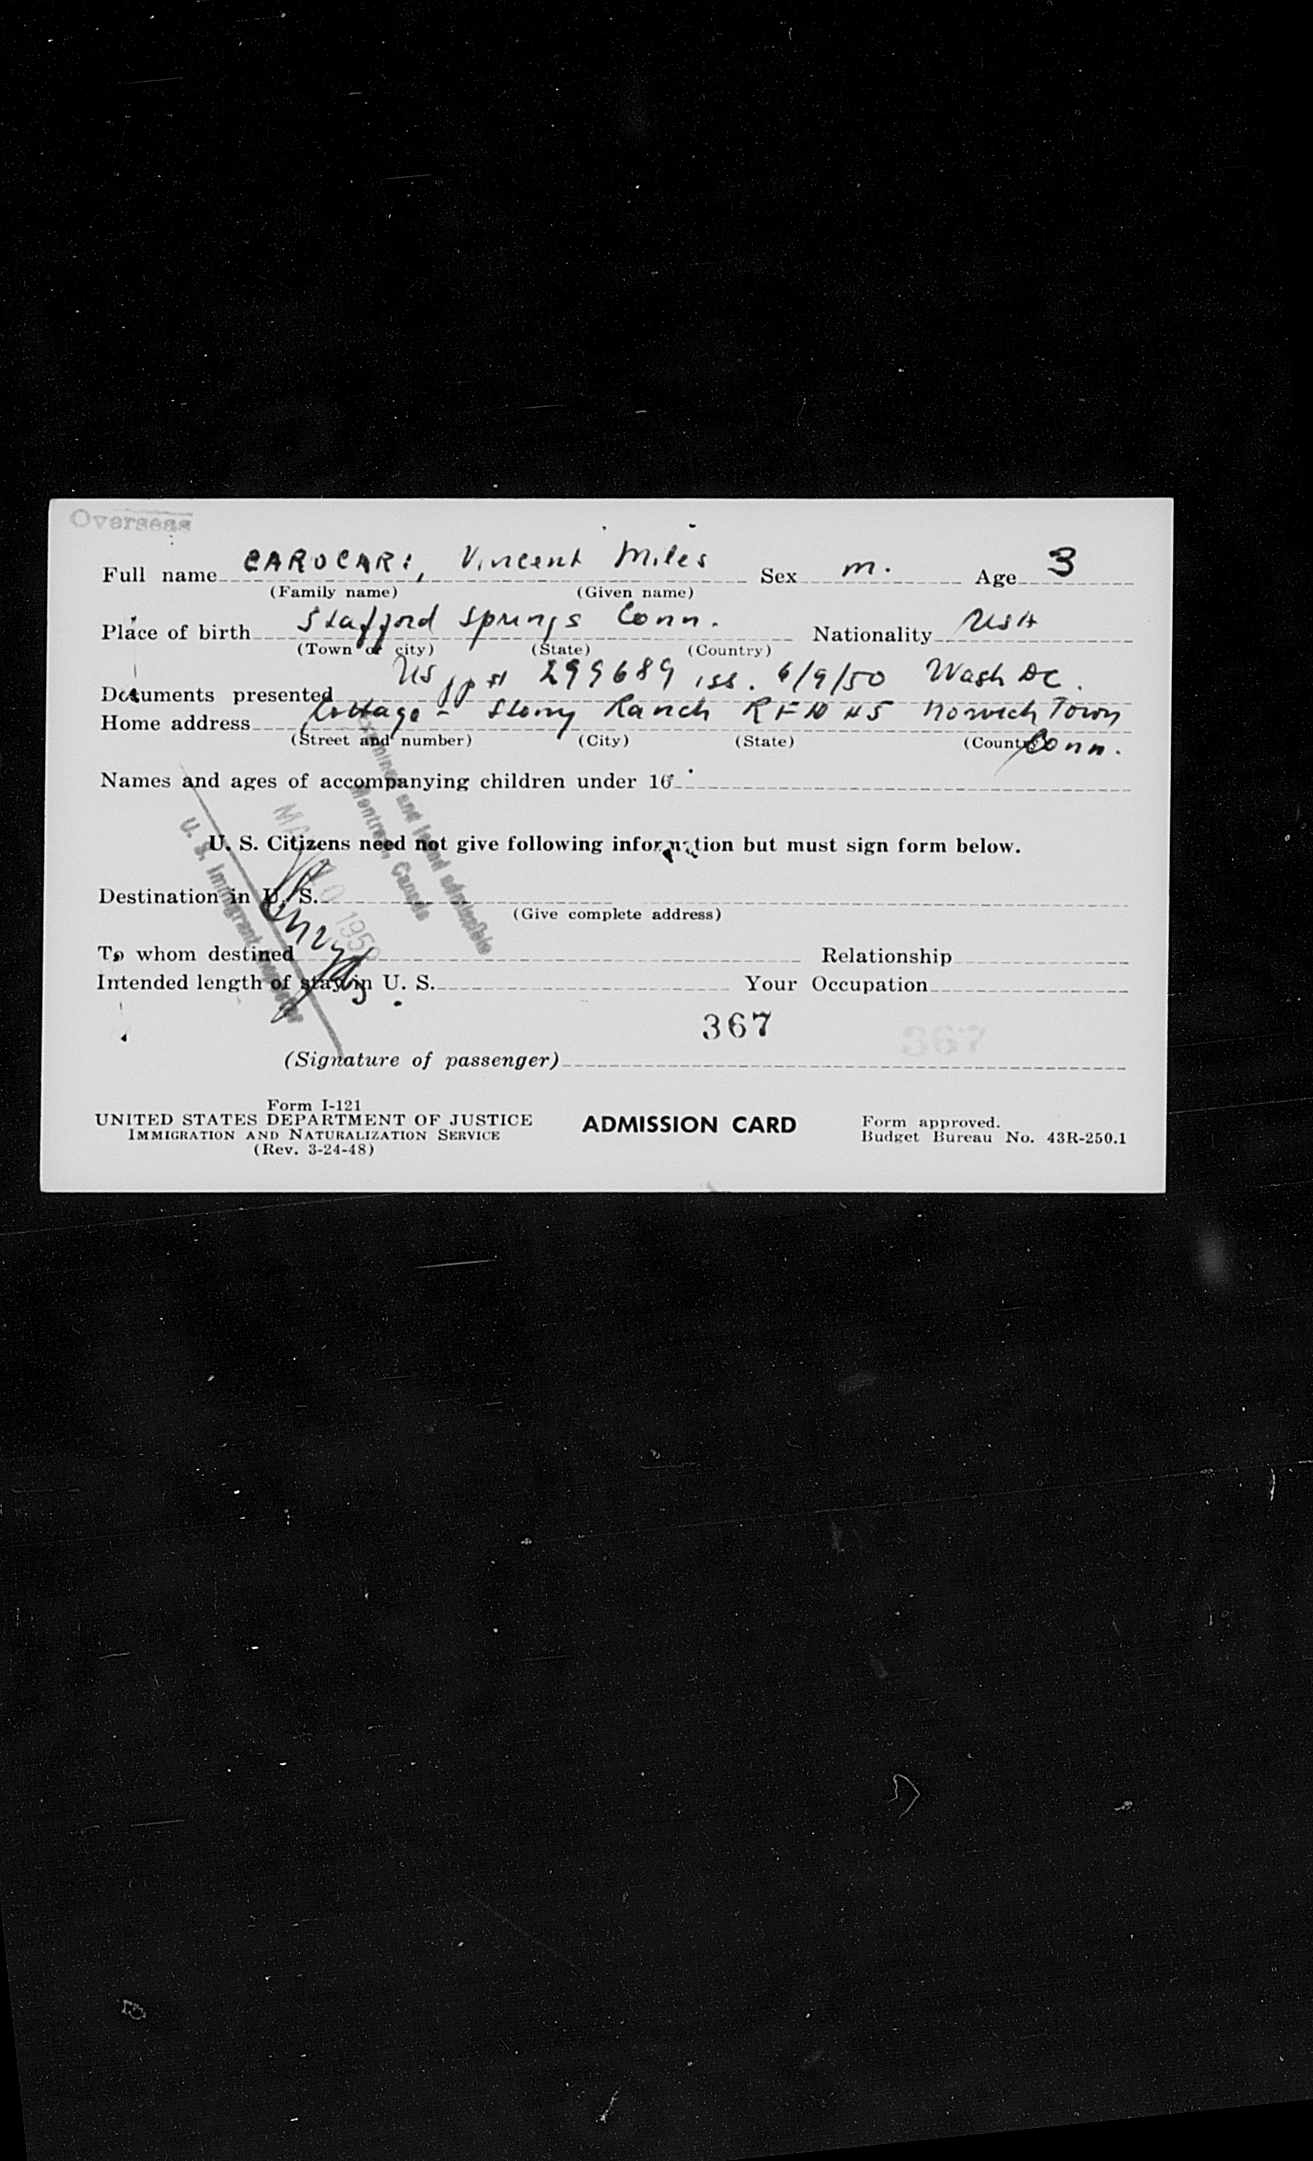 Overseas
Full name CAROCARI, Vincent Miles Sex m. Age 3
(Family name) (Given name)
Place of birth Stafford Springs Conn. Nationality USA
(Town or city) (State) (Country)
Documents presented US ppt 299689 iss. 6/9/50 Wash DC.
Home address Cottage - Stony Ranch RFD #5 Norwich Town
(Street and number) (City) (State) (Country) Conn.
Names and ages of accompanying children under 16
U. S. Citizens need not give following information but must sign form below.
Examined and found admissible
Montreal, Canada
1950
U. S. Immigrant Inspector
Destination in U. S.
(Give complete address)
To whom destined Relationship
Intended length of stay in U. S. Your Occupation
367 367
(Signature of passenger)
Form I-121
UNITED STATES DEPARTMENT OF JUSTICE ADMISSION CARD Form approved.
IMMIGRATION AND NATURALIZATION SERVICE Budget Bureau No. 43R-250.1
(Rev. 3-24-48)